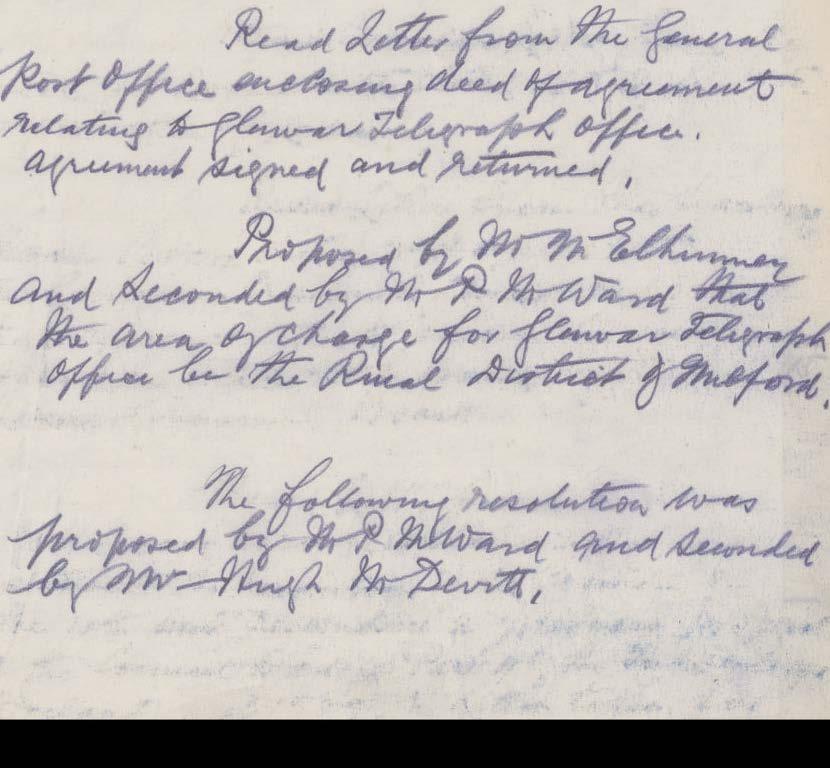 Read Letter from the General
Post Office enclosing deed of agreement
relating to Glenvar Telegraph Office.
agreement signed and returned,
Proposed by Mr McElhinney
and Seconded by Mr P McWard that
the area of charge for Glenvar Telegraph
Office be the Rural District of Milford.
The following resolution was
proposed by Mr P McWard and seconded
by Mr Hugh McDevitt,